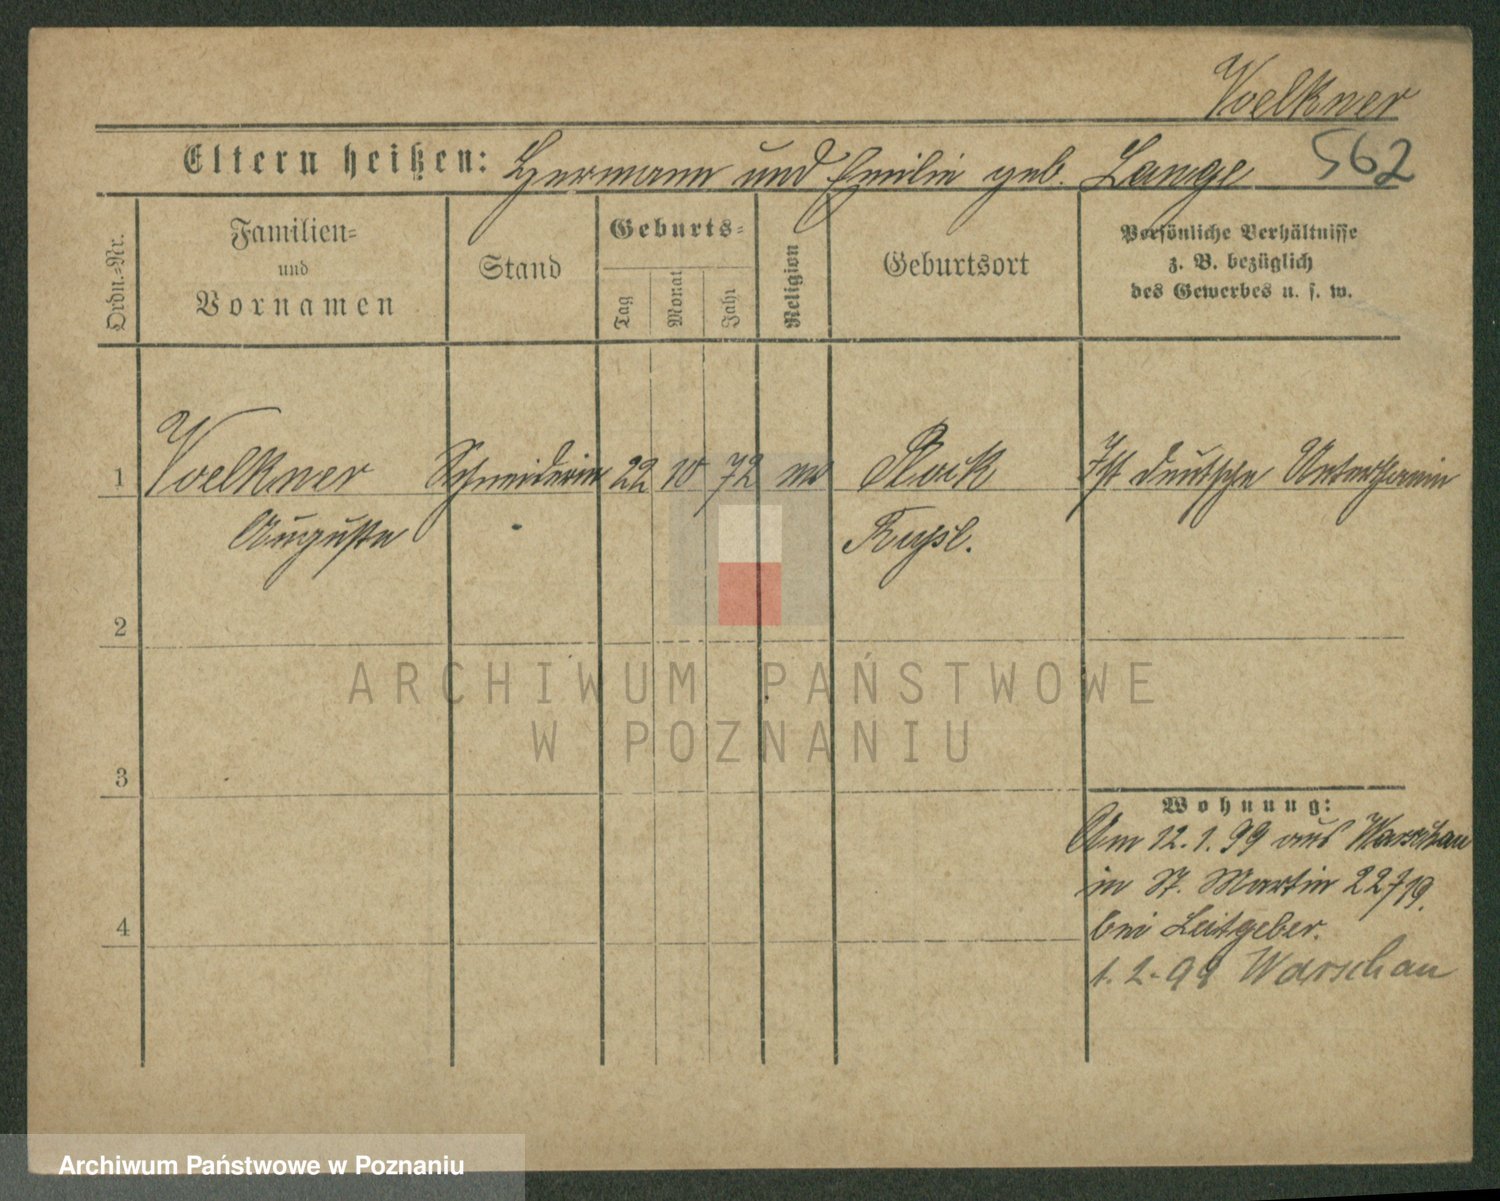 Voelkner
562
Eltern heißen: Hermann und Emilie geb. Lange
Ordn.-Nr.
Familien-
und
Vornamen
Stand
Geburts-
Tag
Monat
Jahr
Religion
Geburtsort
Persönliche Verhältnisse
z. B. bezüglich
des Gewerbes u. s. w.
1 Voelkner Schneiderin 22 10 72 Plock Ist deutsche Unterthanin
Auguste Russl.
2
ARCHIWUM PAŃSTWOWE
W POZNANIU
3
Wohnung:
Am 12.1.99 aus Warschau
in St. Martin 22/19.
bei Leitgeber.
4
1.2.99 Warschau
Archiwum Państwowe w Poznaniu